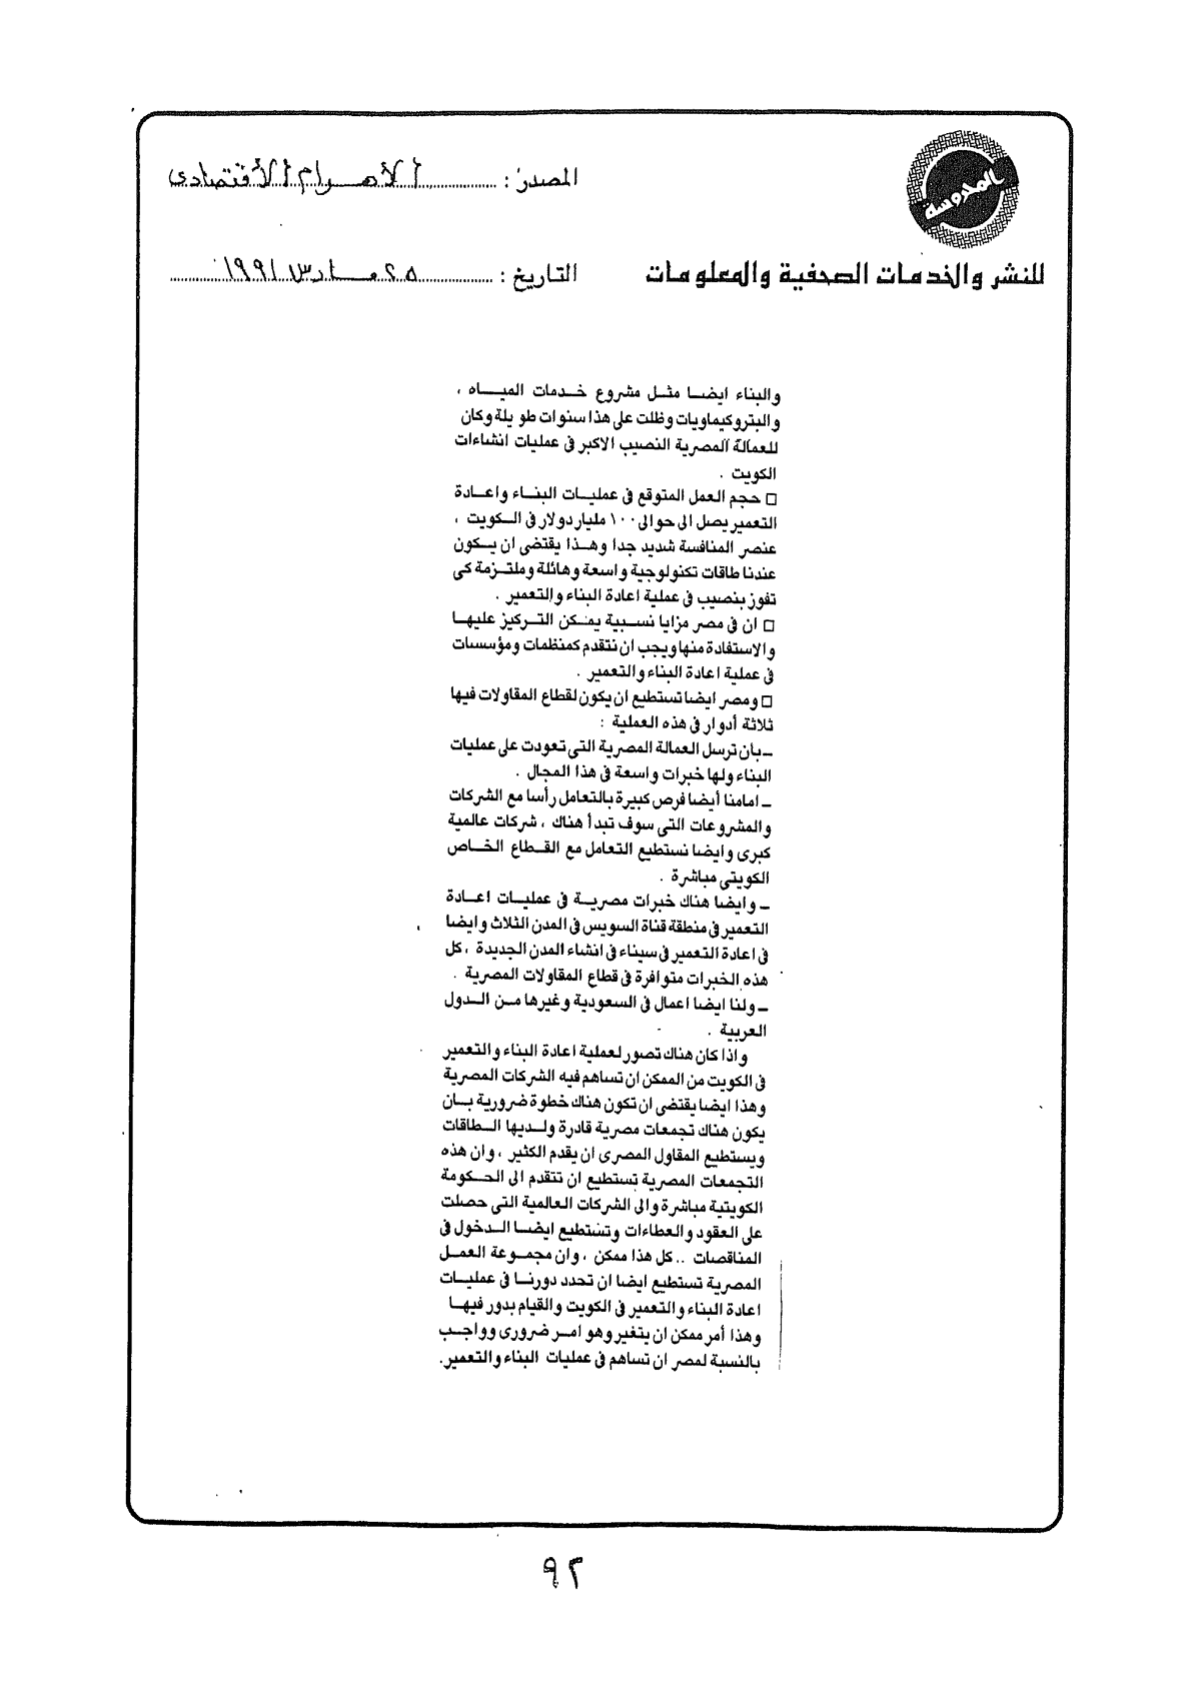 المحروسة
المصدر : الأهرام الأقتصادى
للنشر والخدمات الصحفية والمعلومات
التاريخ : ٢٥ مارس ١٩٩١
والبناء ايضا مثل مشروع خدمات المياه ،
والبتروكيماويات وظلت على هذا سنوات طويلة وكان
للعمالة المصرية النصيب الاكبر فى عمليات انشاءات
الكويت .
□ حجم العمل المتوقع فى عمليات البناء واعادة
التعمير يصل الى حوالى ١٠٠ مليار دولار فى الكويت ،
عنصر المنافسة شديد جدا وهذا يقتضى ان يكون
عندنا طاقات تكنولوجية واسعة وهائلة وملتزمة كى
تفوز بنصيب فى عملية اعادة البناء والتعمير .
□ ان فى مصر مزايا نسبية يمكن التركيز عليها
والاستفادة منها ويجب ان نتقدم كمنظمات ومؤسسات
فى عملية اعادة البناء والتعمير .
□ ومصر ايضا تستطيع ان يكون لقطاع المقاولات فيها
ثلاثة أدوار فى هذه العملية :
ــ بان ترسل العمالة المصرية التى تعودت على عمليات
البناء ولها خبرات واسعة فى هذا المجال .
ــ امامنا أيضا فرص كبيرة بالتعامل رأسا مع الشركات
والمشروعات التى سوف تبدأ هناك ، شركات عالمية
كبرى وايضا نستطيع التعامل مع القطاع الخاص
الكويتى مباشرة .
ــ وايضا هناك خبرات مصرية فى عمليات اعادة
التعمير فى منطقة قناة السويس فى المدن الثلاث وايضا
فى اعادة التعمير فى سيناء فى انشاء المدن الجديدة ، كل
هذه الخبرات متوافرة فى قطاع المقاولات المصرية .
ــ ولنا ايضا اعمال فى السعودية وغيرها من الدول
العربية .
واذا كان هناك تصور لعملية اعادة البناء والتعمير
فى الكويت من الممكن ان تساهم فيه الشركات المصرية
وهذا ايضا يقتضى ان تكون هناك خطوة ضرورية بان
يكون هناك تجمعات مصرية قادرة ولديها الطاقات
ويستطيع المقاول المصرى ان يقدم الكثير ، وان هذه
التجمعات المصرية تستطيع ان تتقدم الى الحكومة
الكويتية مباشرة والى الشركات العالمية التى حصلت
على العقود والعطاءات وتستطيع ايضا الدخول فى
المناقصات .. كل هذا ممكن ، وان مجموعة العمل
المصرية تستطيع ايضا ان تحدد دورنا فى عمليات
اعادة البناء والتعمير فى الكويت والقيام بدور فيها
وهذا أمر ممكن ان يتغير وهو امر ضرورى وواجب
بالنسبة لمصر ان تساهم فى عمليات البناء والتعمير.
٩٢